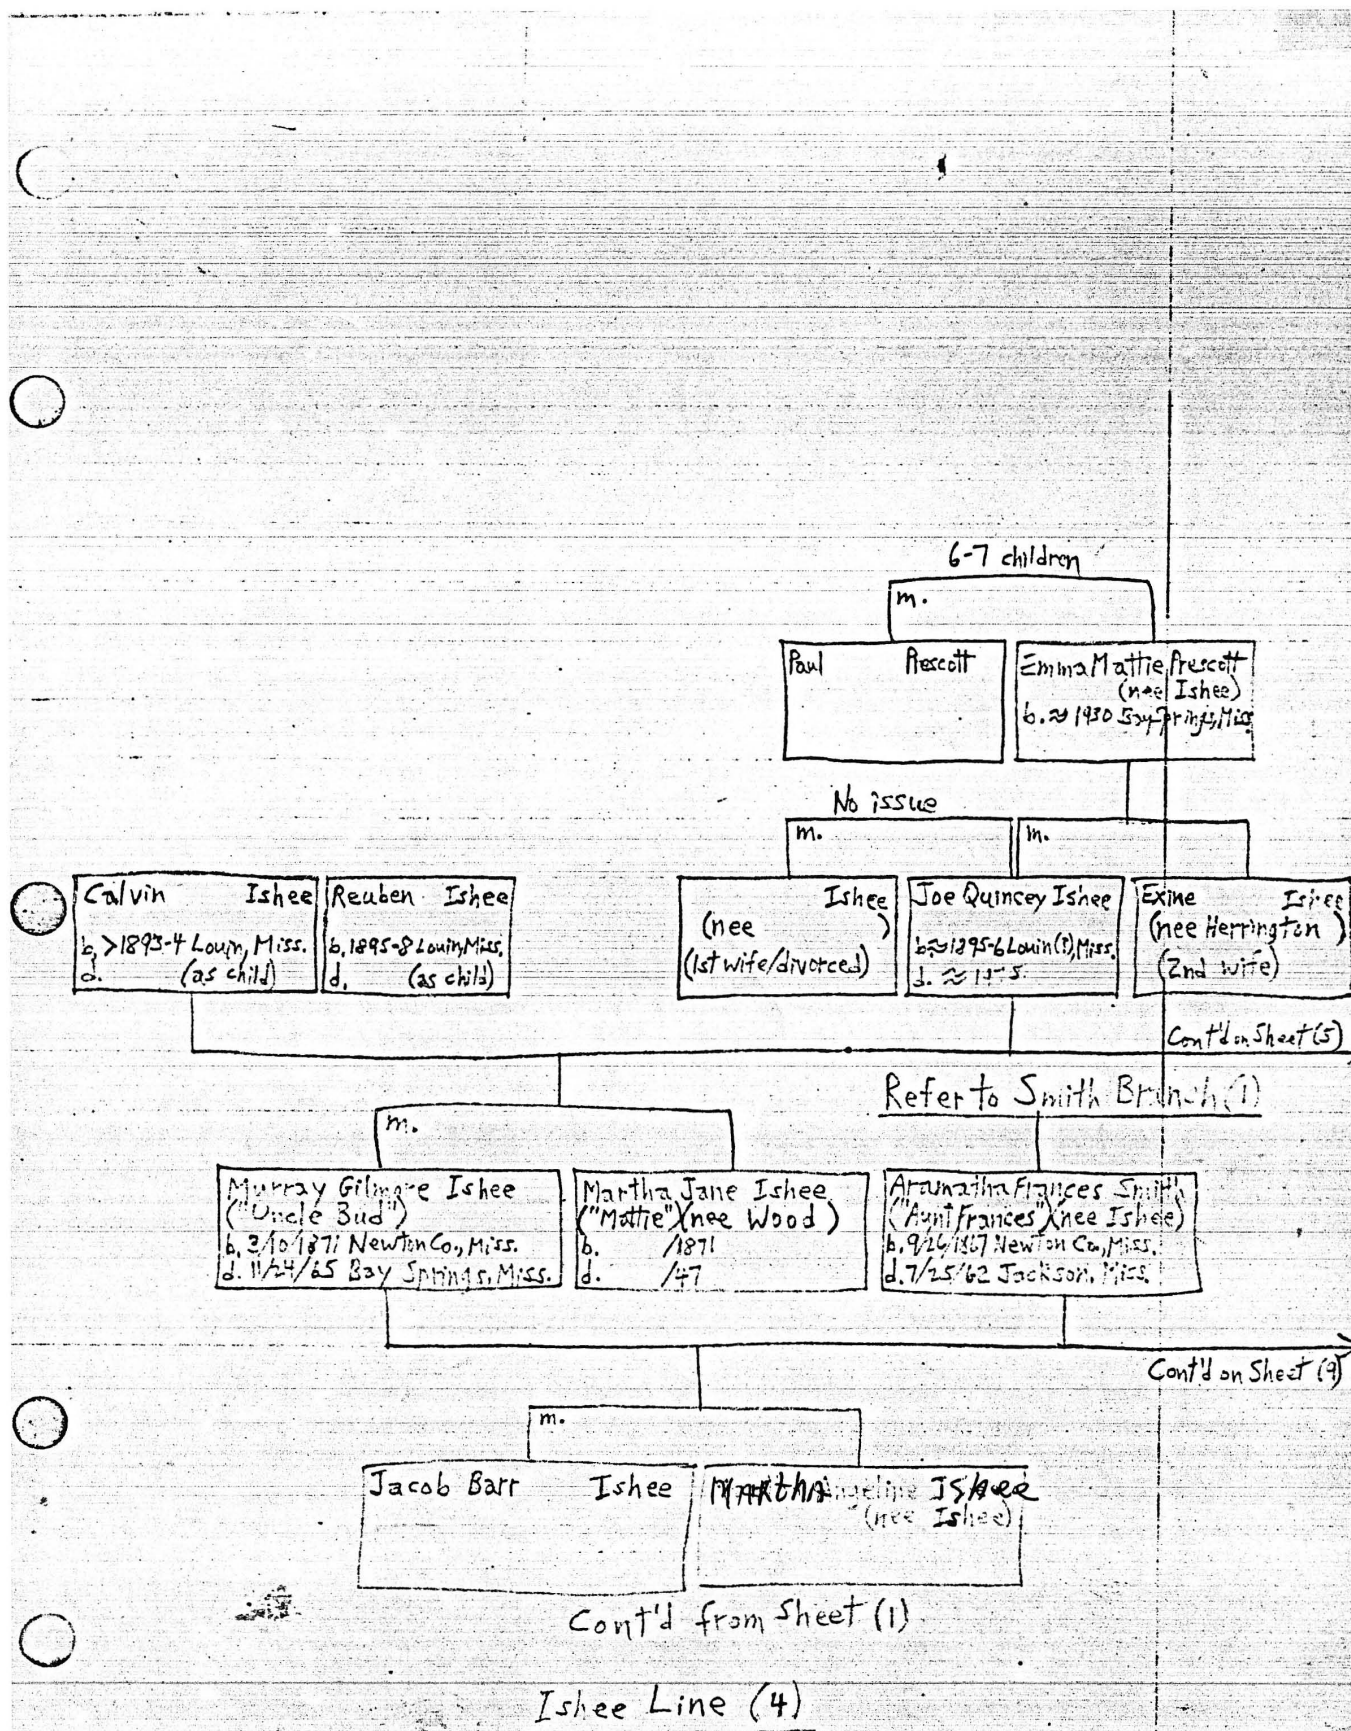 6-7 children
m.
Paul Prescott
Emma Mattie Prescott
(nee Ishee)
b. ≈ 1930 Bay Springs, Miss.
No issue
m.
m.
Calvin Ishee
b. >1893-4 Louin, Miss.
d. (as child)
Reuben Ishee
b. 1895-8 Louin, Miss.
d. (as child)
Ishee
(nee )
(1st wife/divorced)
Joe Quincey Ishee
b. ≈ 1895-6 Louin(?), Miss.
d. ≈
Exine Ishee
(nee Herrington )
(2nd wife)
Cont'd on Sheet (5)
Refer to Smith Branch (1)
m.
Murray Gilmore Ishee
("Uncle Bud")
b. 3/10/1871 Newton Co., Miss.
d. 11/24/65 Bay Springs, Miss.
Martha Jane Ishee
("Mattie")(nee Wood )
b. /1871
d. /47
Aramatha Frances Smith
("Aunt Frances")(nee Ishee)
b. 9/26/1867 Newton Co., Miss.
d. 7/25/62 Jackson, Miss.
Cont'd on Sheet (9)
m.
Jacob Barr Ishee
Martha Angeline Ishee
(nee Ishee)
Cont'd from Sheet (1)
Ishee Line (4)